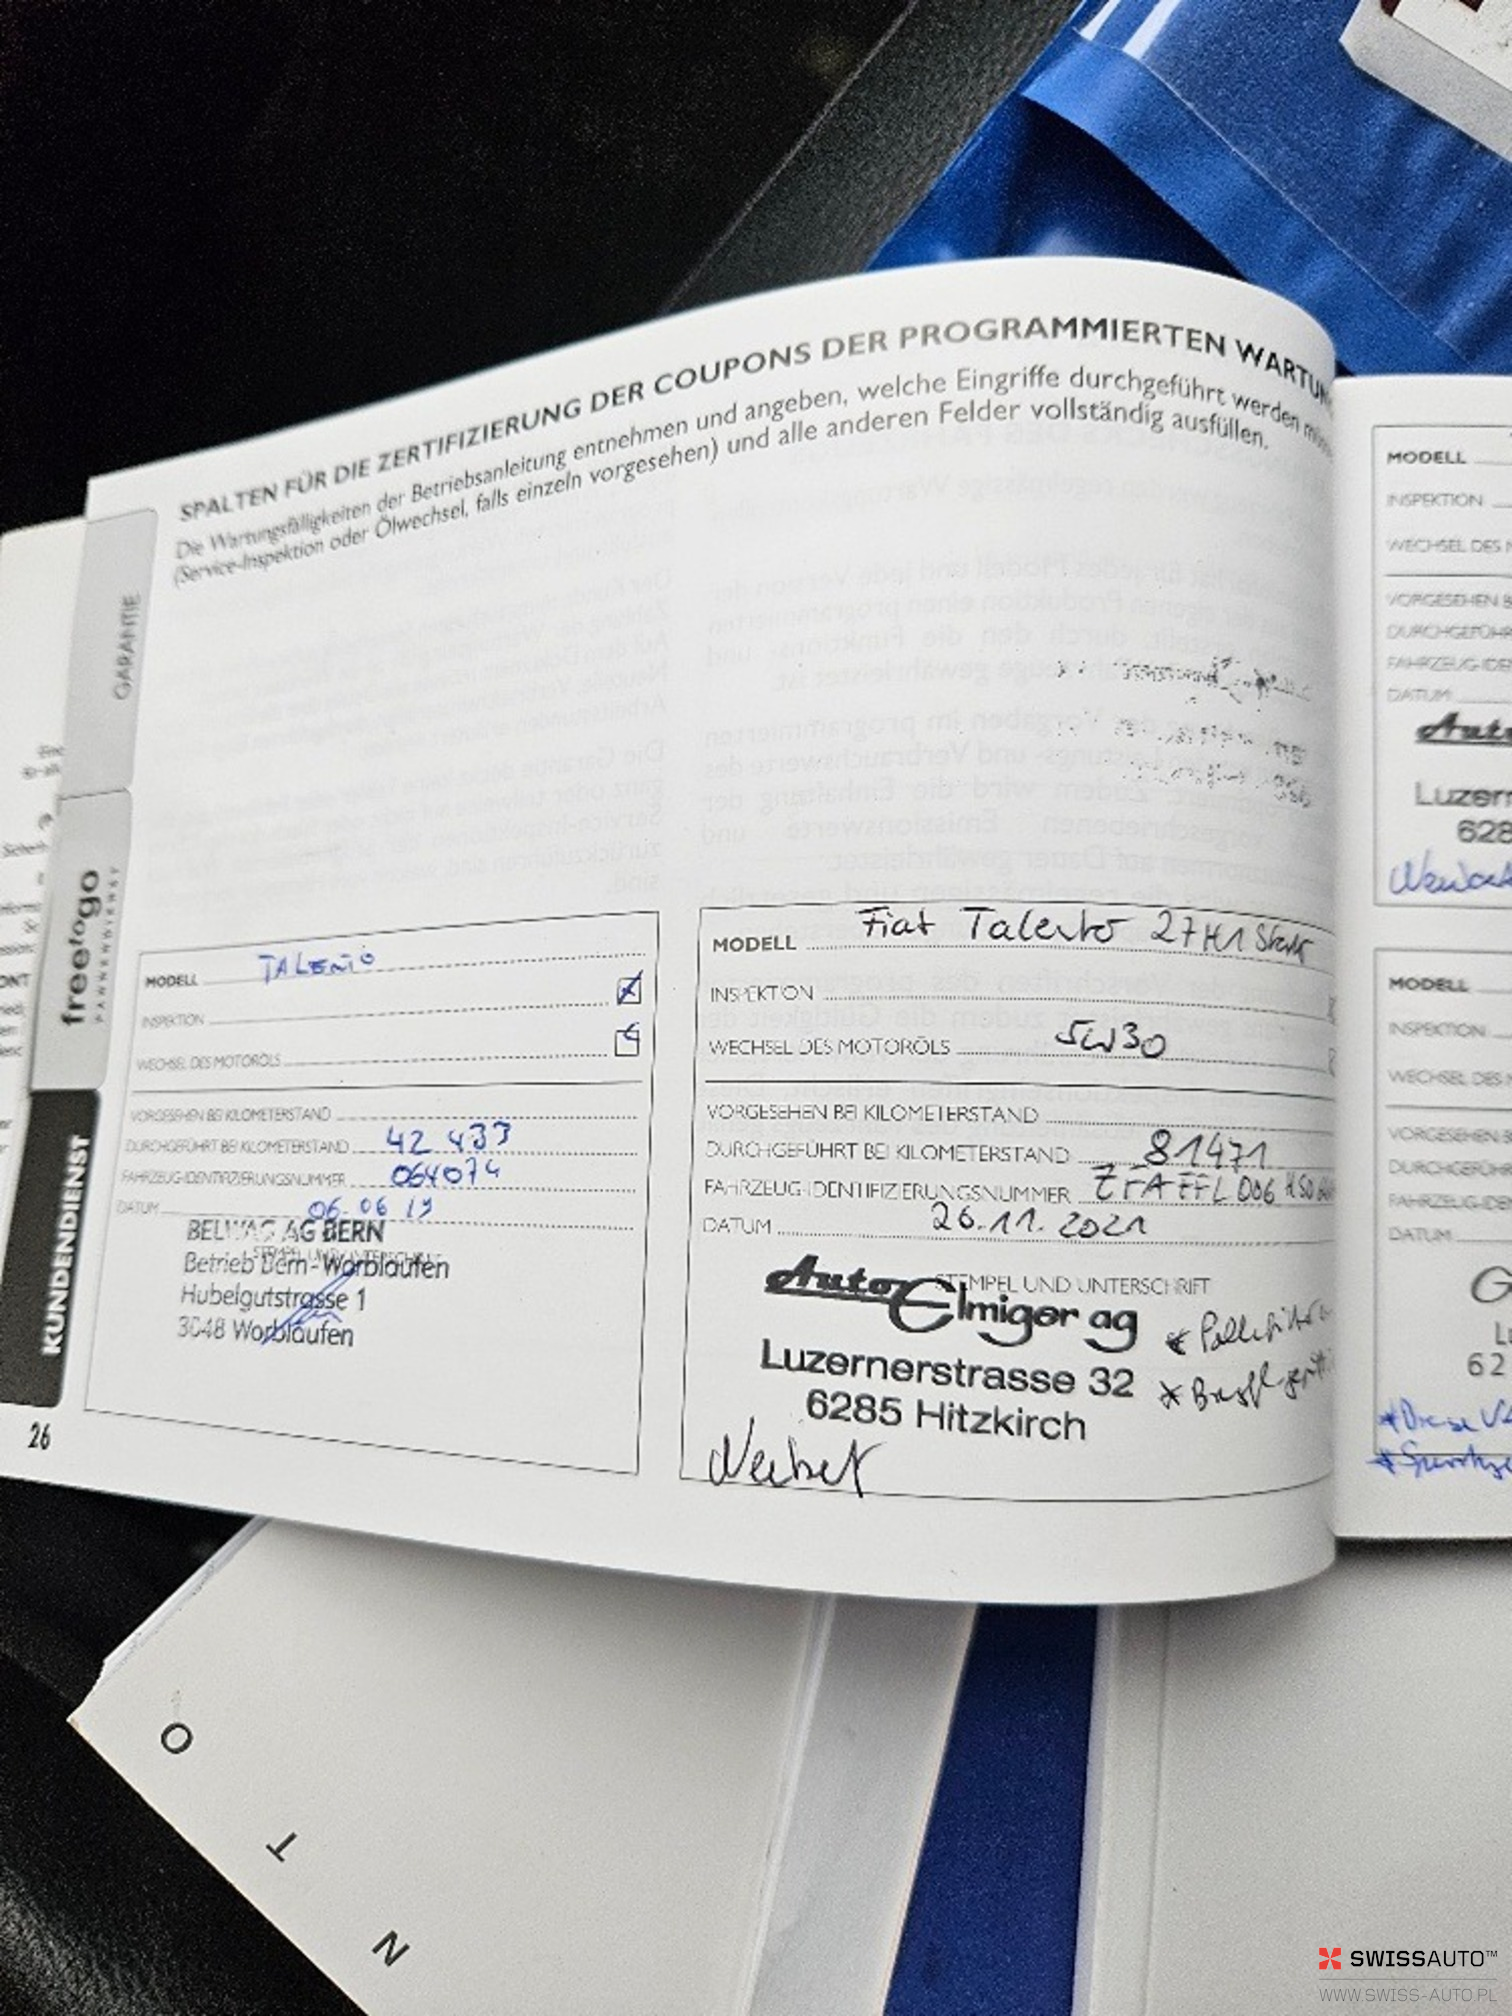 SPALTEN FÜR DIE ZERTIFIZIERUNG DER COUPONS DER PROGRAMMIERTEN WARTUN
Die Wartungsfälligkeiten der Betriebsanleitung entnehmen und angeben, welche Eingriffe durchgeführt werden
(Service-Inspektion oder Ölwechsel, falls einzeln vorgesehen) und alle anderen Felder vollständig ausfüllen.
GARANTIE
freetogo
PANNENDIENST
KUNDENDIENST
26
MODELL TALENTO
INSPEKTION
WECHSEL DES MOTORÖLS
VORGESEHEN BEI KILOMETERSTAND
DURCHGEFÜHRT BEI KILOMETERSTAND 42 433
FAHRZEUG-IDENTIFIZIERUNGSNUMMER 064074
DATUM 06 06 19
BELWAG AG BERN
STEMPEL UND UNTERSCHRIFT
Betrieb Bern-Worblaufen
Hubelgutstrasse 1
3048 Worblaufen
MODELL Fiat Talento 27 H1
INSPEKTION
WECHSEL DES MOTORÖLS 5W30
VORGESEHEN BEI KILOMETERSTAND
DURCHGEFÜHRT BEI KILOMETERSTAND 81471
FAHRZEUG-IDENTIFIZIERUNGSNUMMER ZFAFFL006
DATUM 26.11.2021
STEMPEL UND UNTERSCHRIFT
Auto Elmiger ag
Luzernerstrasse 32
6285 Hitzkirch
MODELL
INSPEKTION
WECHSEL DES
VORGESEHEN B
DURCHGEFÜHR
FAHRZEUG-IDE
DATUM
Auto
Luzern
628
MODELL
INSPEKTION
WECHSEL DES
VORGESEHEN BE
DURCHGEFÜH
FAHRZEUG-IDE
DATUM
62
O
T
N
SWISSAUTO™
WWW.SWISS-AUTO.PL